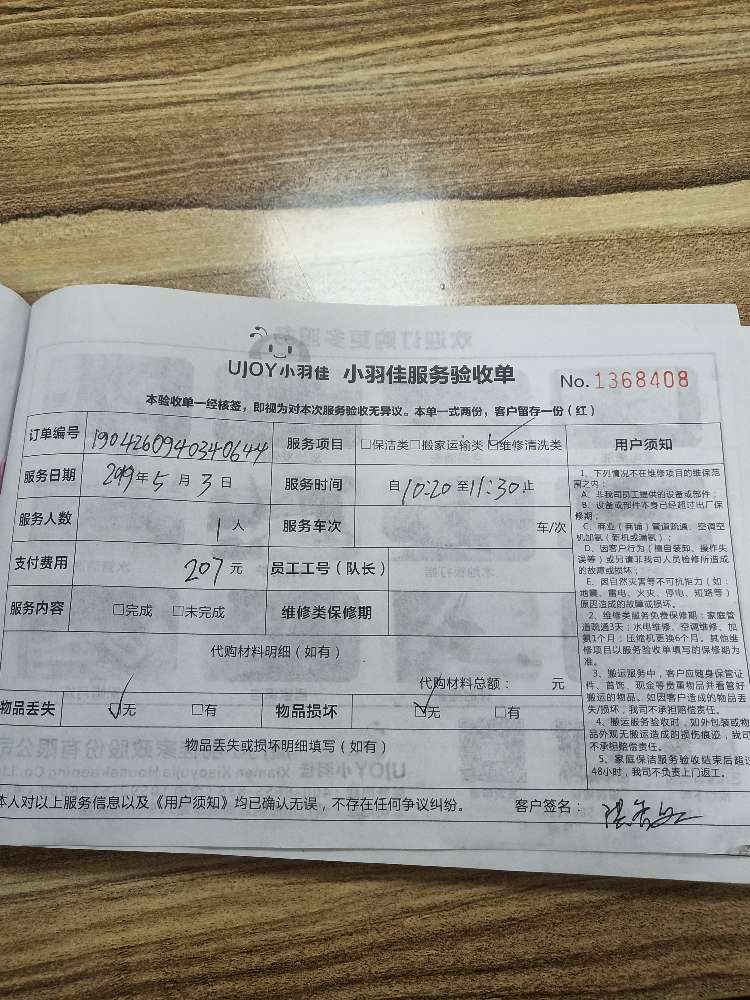 UJOY小羽佳 小羽佳服务验收单 No. 1368408
本验收单一经核签，即视为对本次服务验收无异议。本单一式两份，客户留存一份（红）
订单编号 1904260940340644 服务项目 □保洁类□搬家运输类☑维修清洗类
服务日期 2019年5月3日 服务时间 自10:20至11:30止
服务人数 1人 服务车次 车/次
支付费用 207元 员工工号（队长）
服务内容 □完成 □未完成 维修类保修期
代购材料明细（如有）
代购材料总额： 元
物品丢失 ☑无 □有 物品损坏 ☑无 □有
物品丢失或损坏明细填写（如有）
本人对以上服务信息以及《用户须知》均已确认无误，不存在任何争议纠纷。 客户签名：
用户须知
1、下列情况不在维修项目的维保范
围之内：
A、非我司员工提供的设备或部件；
B、设备或部件本身已经超过出厂保
修期；
C、商业（商铺）管道疏通、空调空
机加氨（新机或漏氨）；
D、因客户行为（擅自装卸、操作失
误等）或另请非我司人员检修所造成
的故障或损坏；
E、因自然灾害等不可抗拒力（如：
地震、雷电、火灾、停电、短路等）
原因造成的故障或损坏。
2、维修类服务免费保修期：家庭管
道疏通3天；水电维修、空调维修、加
氨1个月；压缩机更换6个月。其他维
修项目以服务验收单填写的保修期为
准。
3、搬运服务中，客户应随身保管证
件、首饰、现金等贵重物品并看管好
搬运的物品。如因客户造成的物品丢
失/损坏，我司不承担赔偿责任。
4、搬运服务验收时，如外包装或物
品外观无搬运造成的损伤痕迹，我司
不承担赔偿责任。
5、家庭保洁服务验收结束后超过
48小时，我司不负责上门返工。